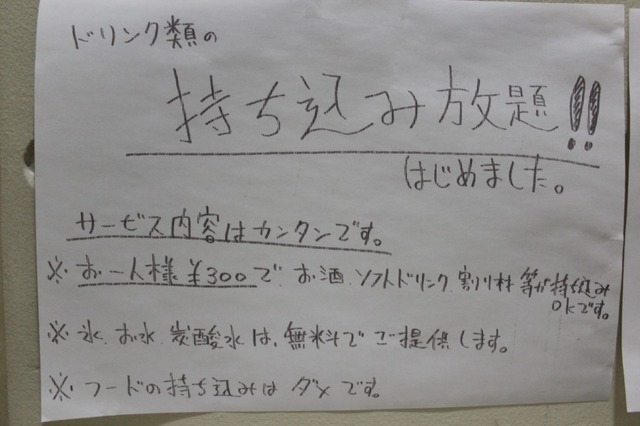 ドリンク類の
持ち込み放題!!
はじめました。
サービス内容はカンタンです。
※お一人様¥300で、お酒、ソフトドリンク、割り材 等が持ち込み
OKです。
※氷、お水、炭酸水は、無料でご提供します。
※フードの持ち込みはダメです。